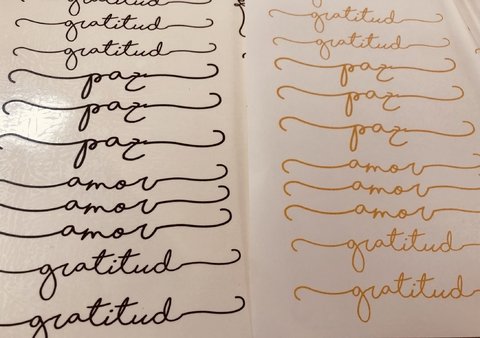 gratitud
gratitud
gratitud
paz
paz
paz
amor
amor
amor
gratitud
gratitud
gratitud
gratitud
gratitud
paz
paz
paz
amor
amor
amor
gratitud
gratitud